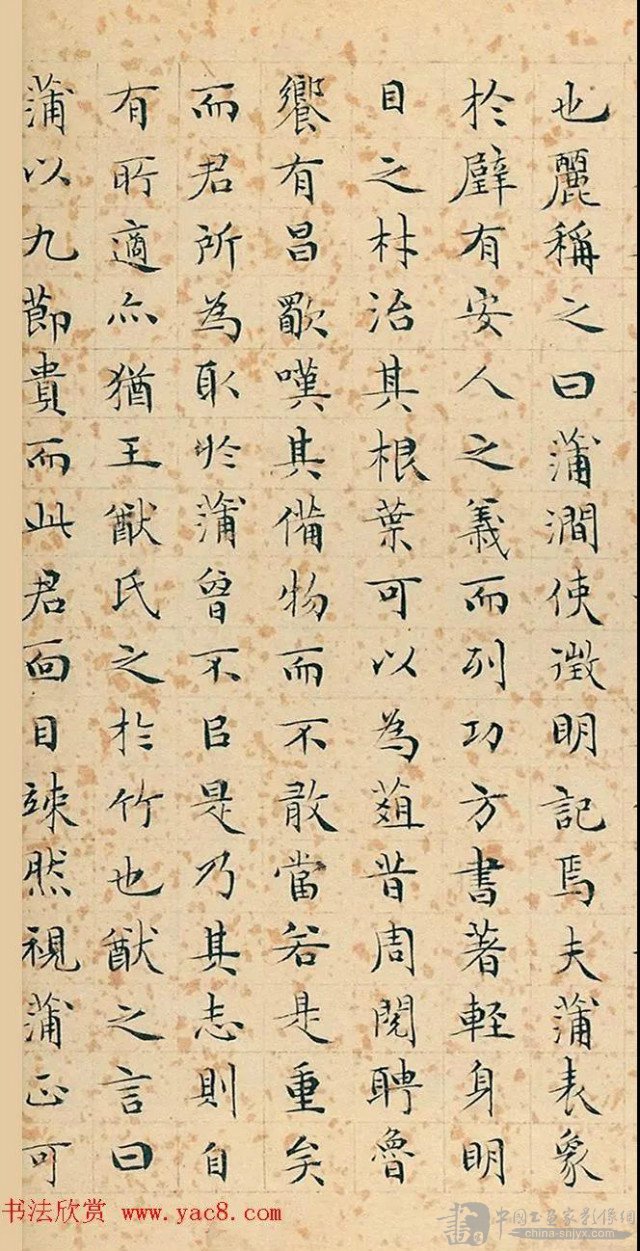 也麗稱之曰蒲澗使徵明記焉夫蒲表象
於璧有安人之義而列功方書著輕身明
目之材治其根葉可以為葅昔周閱聘魯
饗有昌歜嘆其備物而不敢當若是重矣
而君所為取於蒲曾不㠯是乃其志則自
有所適亦猶王猷氏之於竹也猷之言曰
蒲以九節貴而此君面目竦然視蒲正可
书法欣赏 www.yac8.com
中国工笔画家影像網
china-snjyx.com